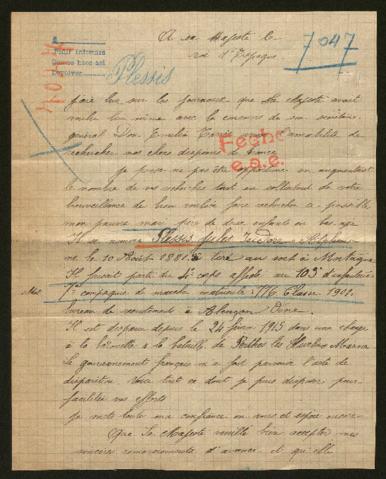 A sa Majesté le
roi d'Espagne
7047
Plessis
Fecho
e.o.e.
J'ai lu sur les journaux que Sa Majesté avait
même avec le concours de son secrétaire
général Don Emilio
rechercher nos chers disparus de France
Je pense ne pas être en augmentant
le nombre de vos recherches tout en sollicitant de votre
bienveillance de bien vouloir faire rechercher si possible
mon pauvre mari père de deux enfants en bas age
Il se nomme Plessis Jules Isidore Alphonse
né le 10 Août 1881 à
Il faisait partie du 4e corps affecté au 103e d'infanterie
1re compagnie de marche matricule 1176 Classe 1901
bureau de recrutement à Alençon Orne
Il est disparu depuis le 24 1915 dans une charge
à la baïonnette à la bataille de Perthes les Hurlus Marne
le gouvernement français m'a fait parvenir l'acte de
disparition. Voici tout ce dont je puis disposer pour
faciliter vos efforts
Je mets toute ma confiance en vous et espère encore
Que Sa Majesté veuille bien accepter mes
sincères d'avance et qu'elle